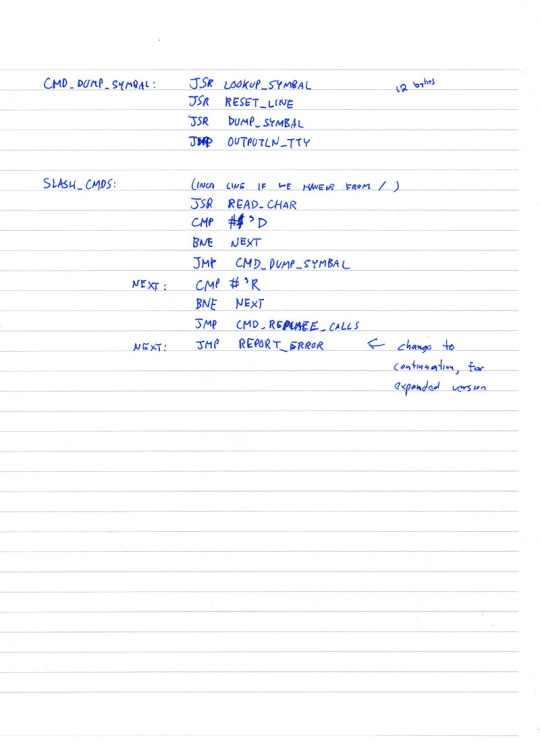 CMD_DUMP_SYMBAL: JSR LOOKUP_SYMBAL 12 bytes
JSR RESET_LINE
JSR DUMP_SYMBAL
JMP OUTPUTLN_TTY
SLASH_CMDS: (INCA LINE IF WE HAVENT FROM / )
JSR READ_CHAR
CMP #'D
BNE NEXT
JMP CMD_DUMP_SYMBAL
NEXT: CMP #'R
BNE NEXT
JMP CMD_REPLACE_CALLS
NEXT: JMP REPORT_ERROR ← change to
continuation, for
expanded version